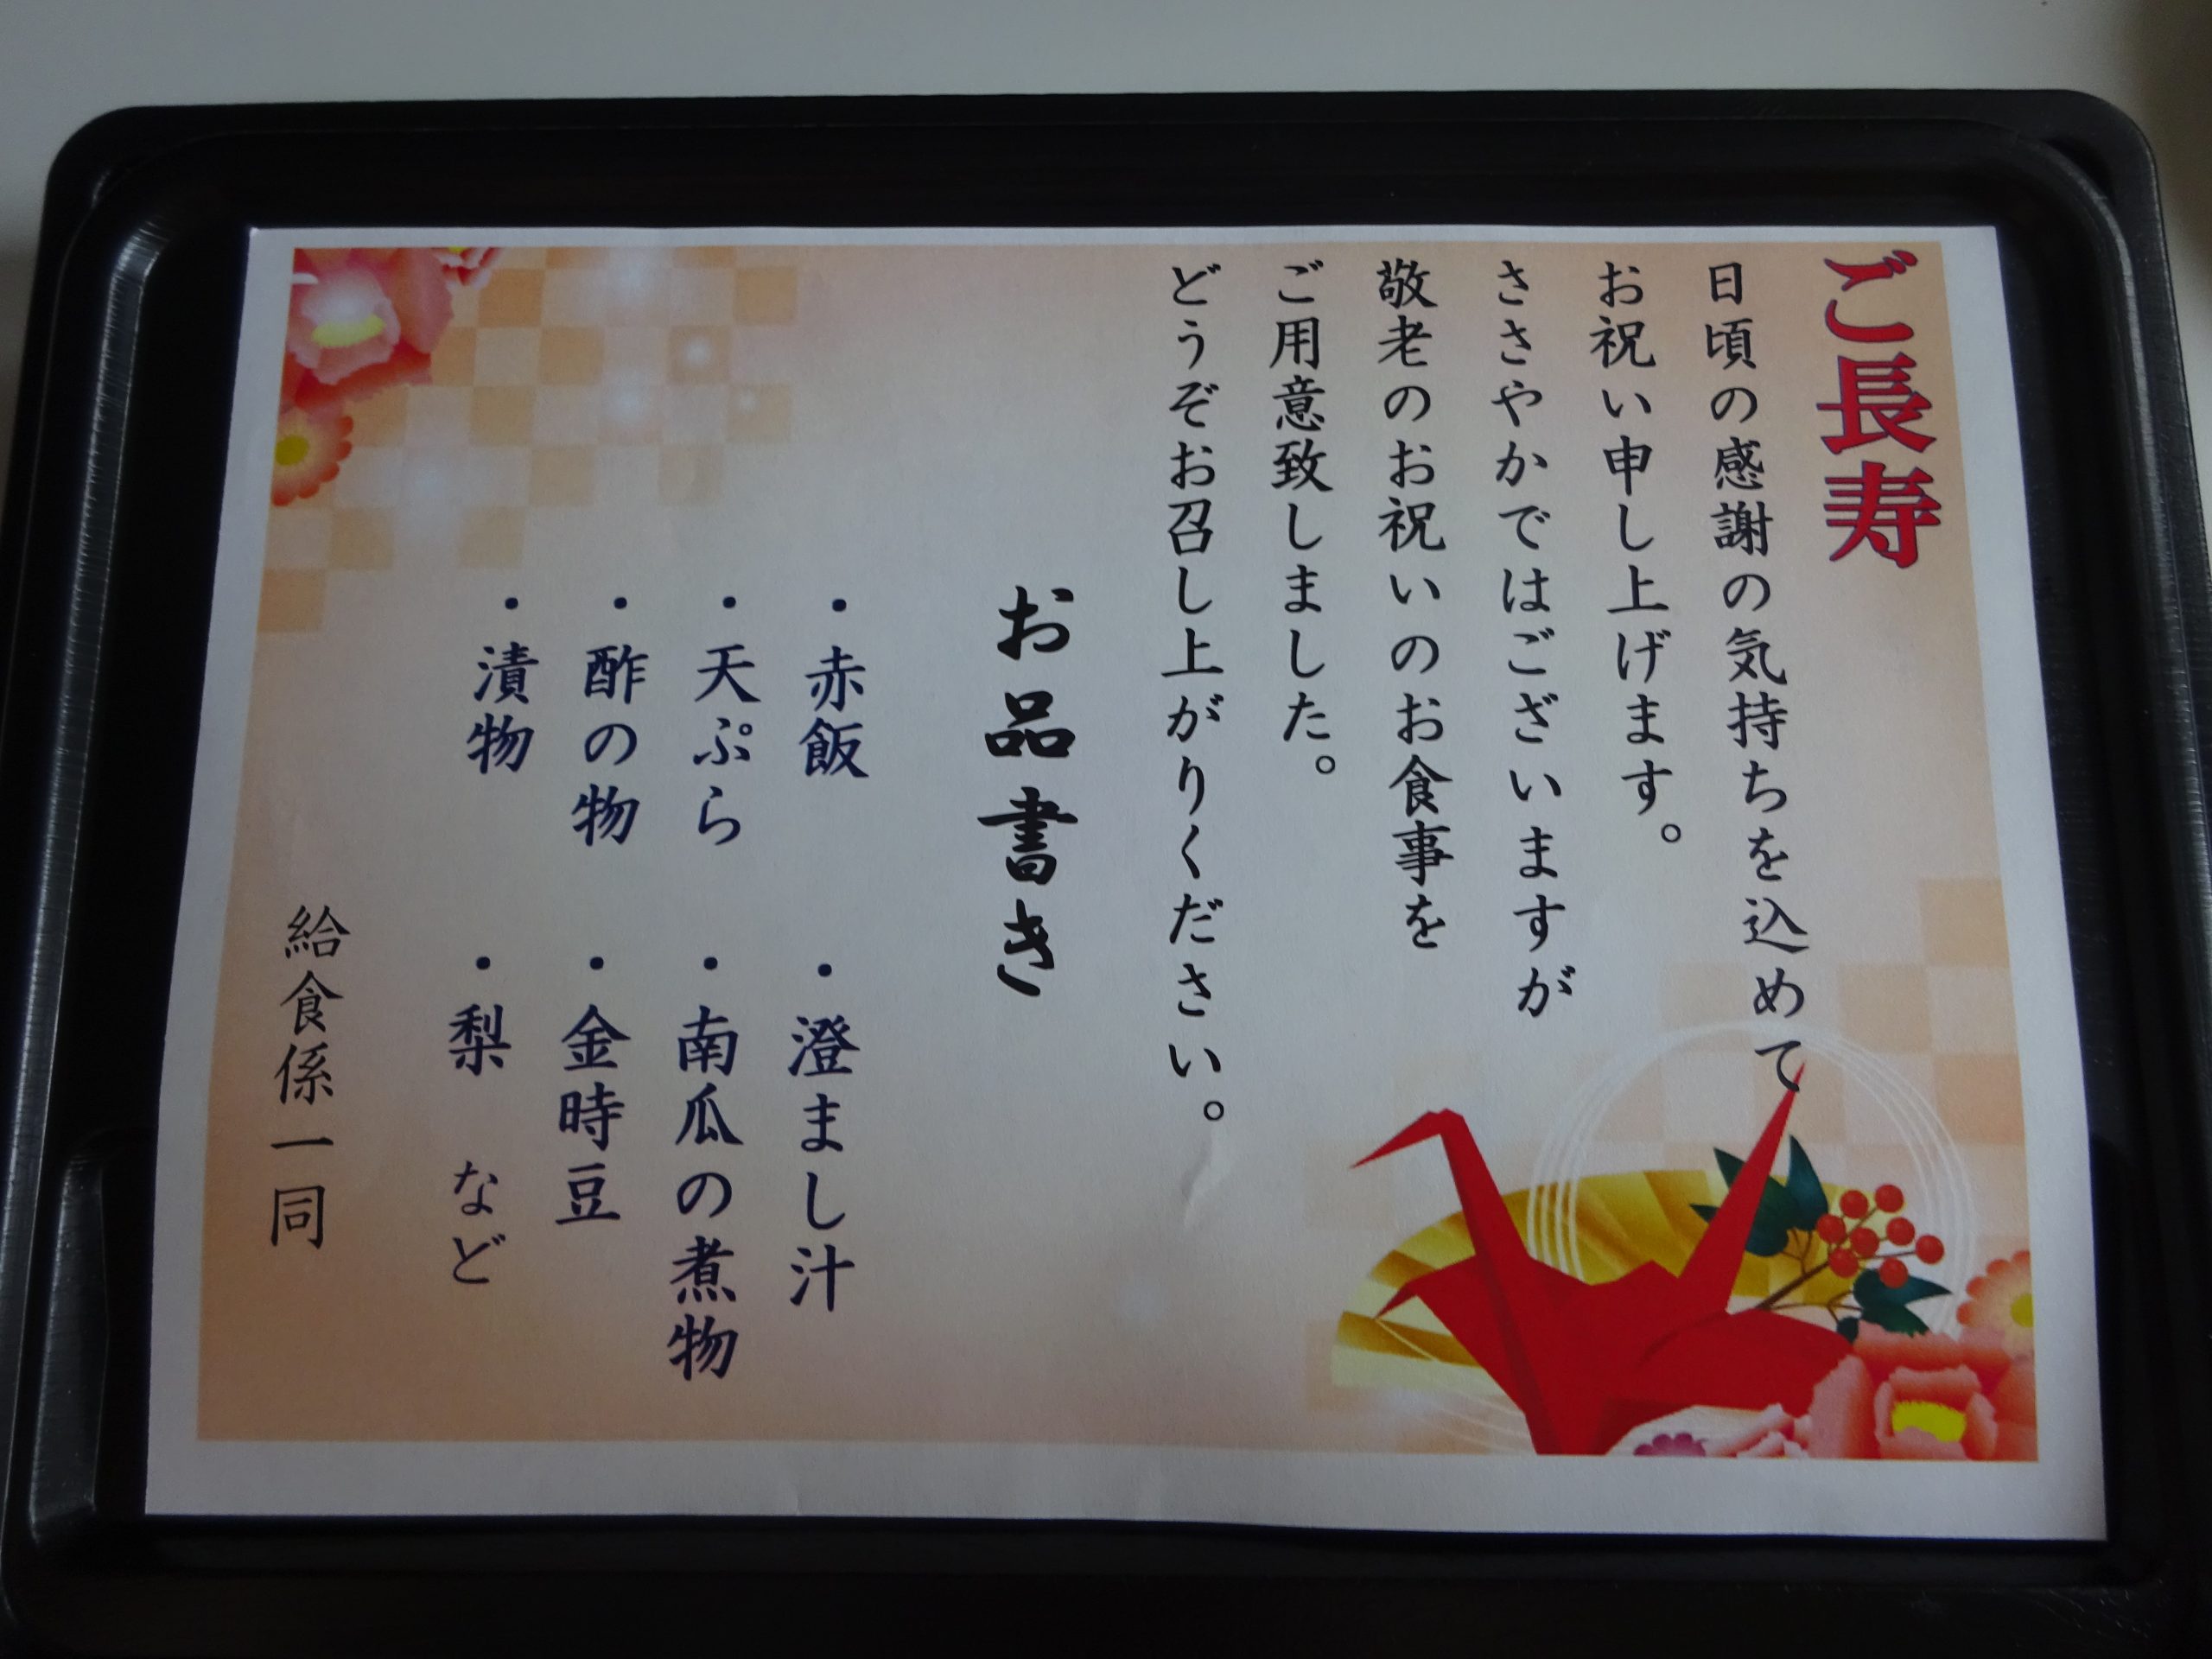 ご長寿
日頃の感謝の気持ちを込めて
お祝い申し上げます。
ささやかではございますが
敬老のお祝いのお食事を
ご用意致しました。
どうぞお召し上がりください。
お品書き
・赤飯　・澄まし汁
・天ぷら　・南瓜の煮物
・酢の物　・金時豆
・漬物　・梨　など
給食係一同